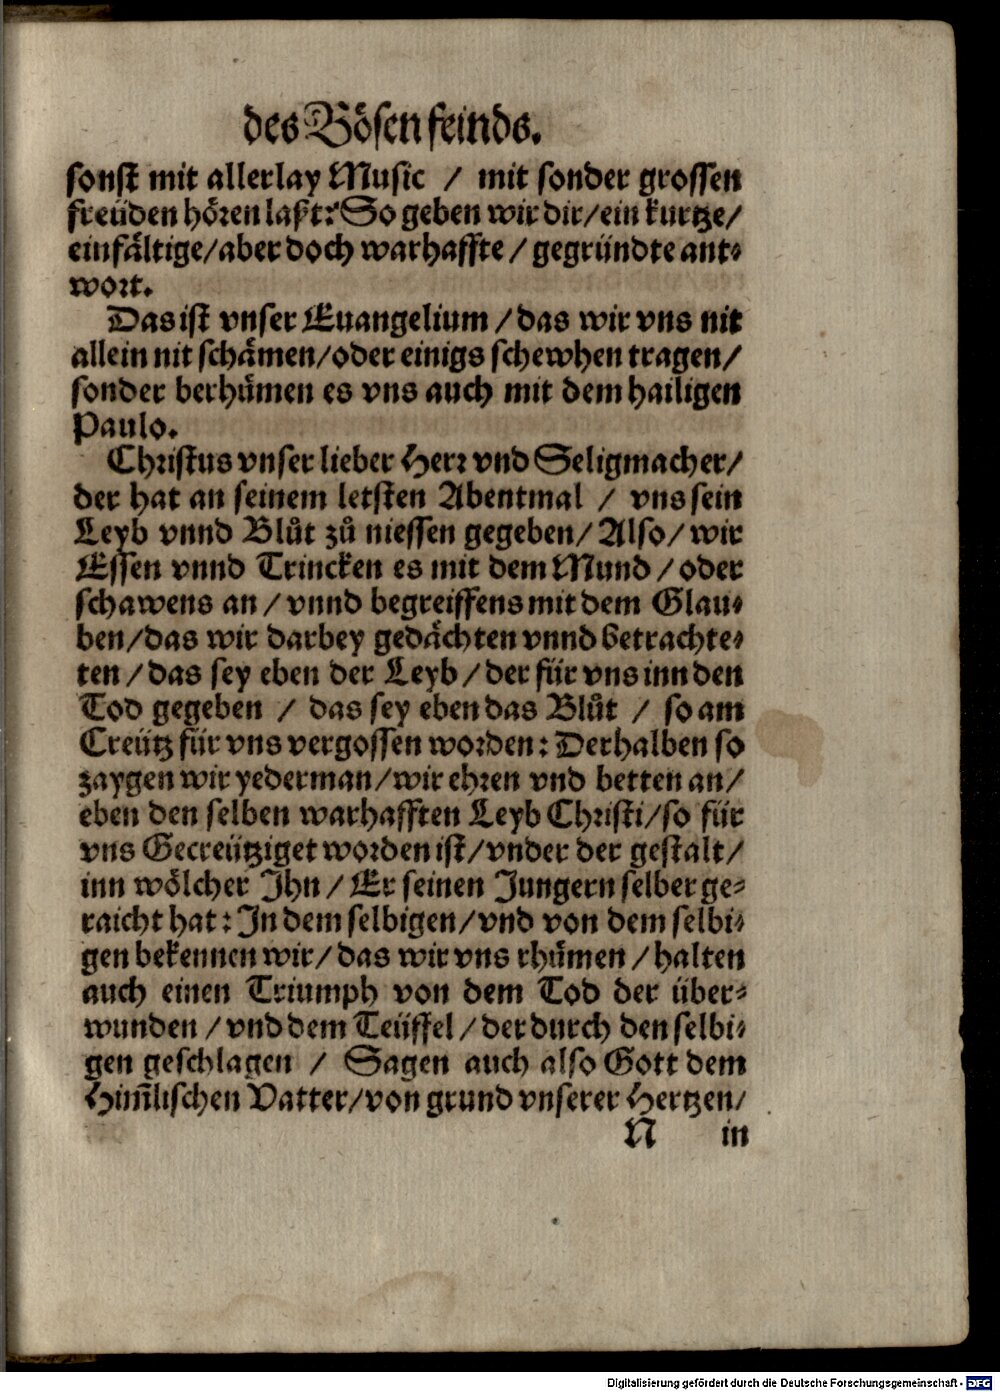 des Bösen feinds.
sonst mit allerlay Music / mit sonder grossen
freüden hören laßt? So geben wir dir/ ein kurtze/
einfältige/ aber doch warhaffte / gegründte ant⸗
wort.
Das ist vnser Euangelium / das wir vns nit
allein nit schämen/ oder einigs schewhen tragen/
sonder berhuͤmen es vns auch mit dem hailigen
Paulo.
Christus vnser lieber Herr vnd Seligmacher/
der hat an seinem letsten Abentmal / vns sein
Leyb vnnd Bluͦt zuͦ niessen gegeben/ Also/ wir
Essen vnnd Trincken es mit dem Mund / oder
schawens an / vnnd begreiffens mit dem Glau⸗
ben/ das wir darbey gedächten vnnd betrachte⸗
ten / das sey eben der Leyb / der für vns inn den
Tod gegeben / das sey eben das Bluͦt / so am
Creütz für vns vergossen worden: Derhalben so
zaygen wir yederman/ wir ehren vnd betten an/
eben den selben warhafften Leyb Christi/ so für
vns Gecreütziget worden ist/ vnder der gestalt/
inn wölcher Jhn / Er seinen Jungern selber ge⸗
raicht hat: Jn dem selbigen/ vnd von dem selbi⸗
gen bekennen wir/ das wir vns rhuͤmen / halten
auch einen Triumph von dem Tod der über⸗
wunden / vnd dem Teüffel / der durch den selbi⸗
gen geschlagen / Sagen auch also Gott dem
Him̃lischen Vatter/ von grund vnserer Hertzen/
N in
Digitalisierung gefördert durch die Deutsche Forschungsgemeinschaft - DFG